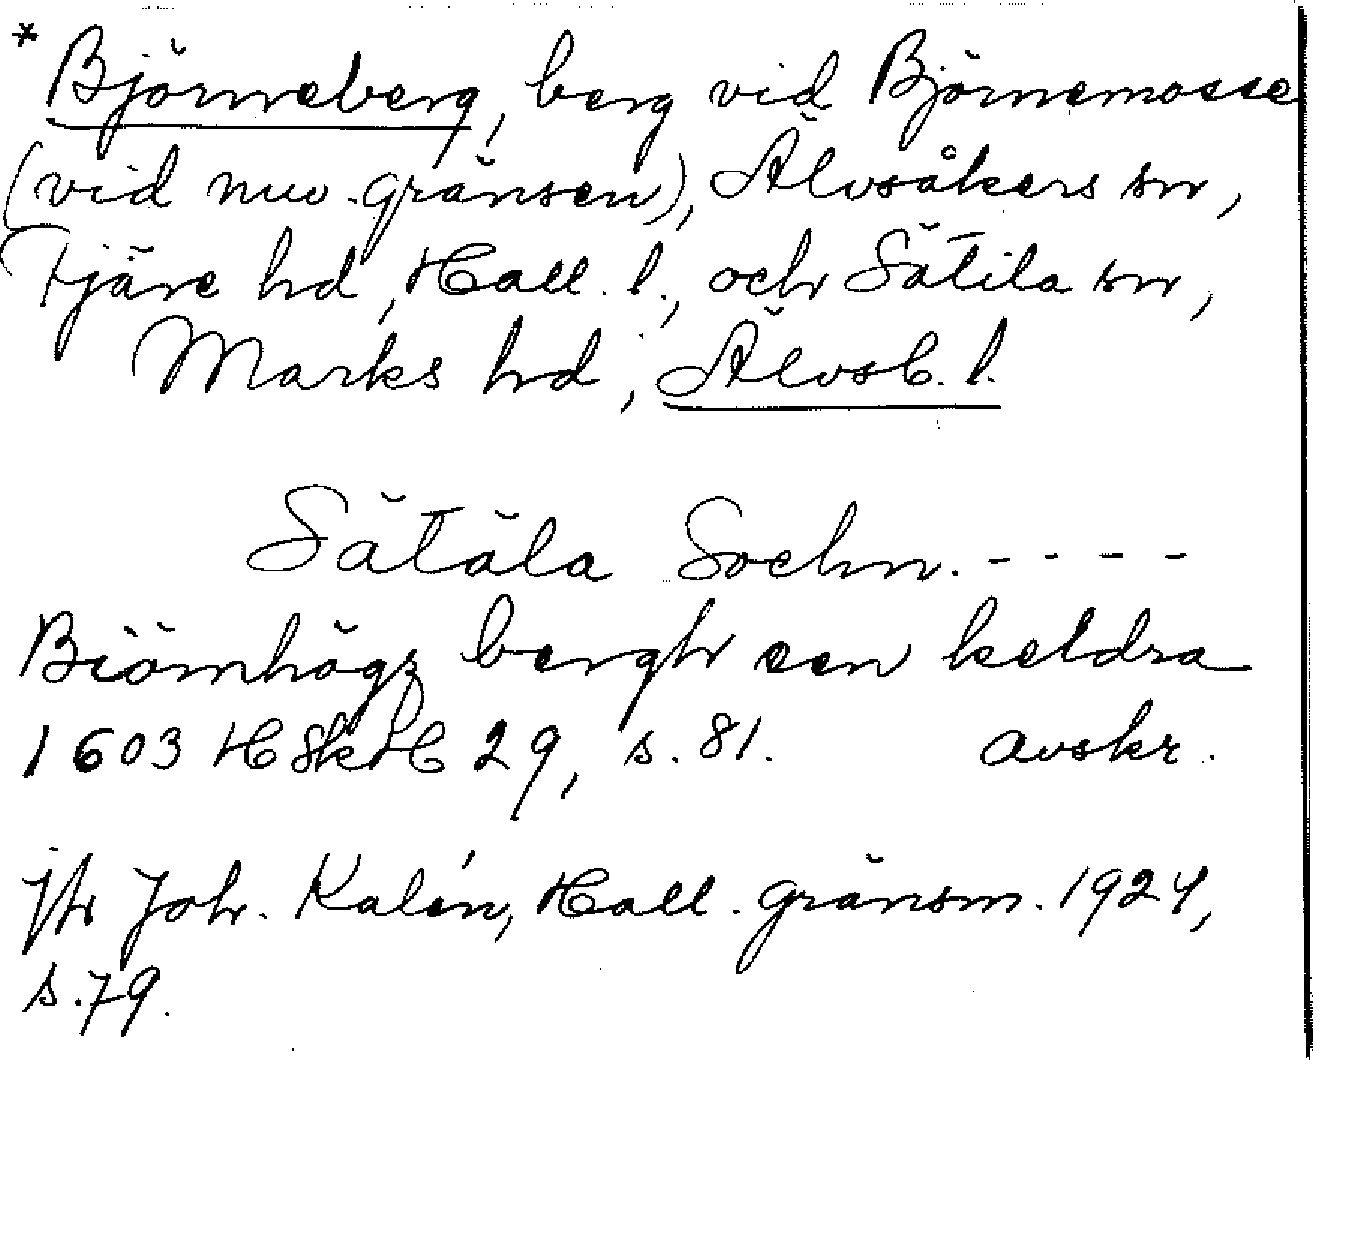 * Björneberg, berg vid Björnemosse
(vid nuv. gränsen), Älvsåkers sn,
Fjäre hd, Hall. l., och Sätila sn,
Marks hd, Älvsb. l.
Sätäla Sochn. - - - -
Biörnhögz bergh een keldra
1603 HSkH 29, s. 81. avskr.
jfr Joh. Kalén, Hall. gränsm. 1924,
s. 79.